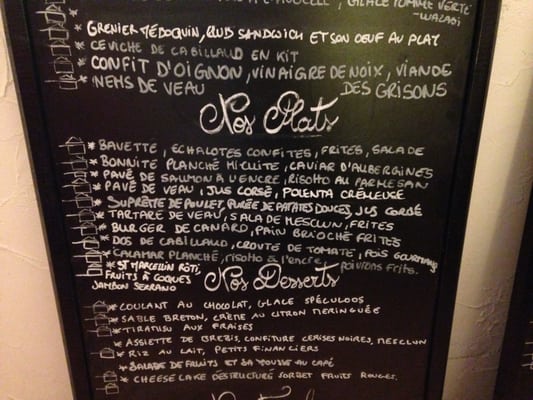 GLACE POMME VERTE
-WASABI
* GRENIER MÉDOQUIN, CLUB SANDWICH ET SON OEUF AU PLAT
* CEVICHE DE CABILLAUD EN KIT
* CONFIT D'OIGNON, VINAIGRE DE NOIX, VIANDE
DES GRISONS
* NEMS DE VEAU
Nos Plats
* BAVETTE, ECHALOTES CONFITES, FRITES, SALADE
* BONNITE PLANCHÉ MICUITE, CAVIAR D'AUBERGINES
* PAVÉ DE SAUMON A L'ENCRE, RISOTTO AU PARMESAN
* PAVÉ DE VEAU, JUS CORSÉ, POLENTA CRÉMEUSE
* SUPRÊTE DE POULET, PURÉE DE PATATES DOUCES, JUS CORSÉ
* TARTARE DE VEAU, SALADE MESCLUN, FRITES
* BURGER DE CANARD, PAIN BRIOCHÉ FRITES
* DOS DE CABILLAUD, CROUTE DE TOMATE, POIS GOURMANDS
* CALAMAR PLANCHÉ, risotto à l'encre, poivrons frits.
* ST MARCELLIN RÔTI,
FRUITS À COQUES
JAMBON SERRANO
Nos Desserts
* COULANT AU CHOCOLAT, GLACE SPÉCULOOS
* SABLE BRETON, CRÈME AU CITRON MERINGUÉE
* TIRAMISU AUX FRAISES
* ASSIETTE DE BREBIS, CONFITURE CERISES NOIRES, MESCLUN
* RIZ AU LAIT, PETITS FINANCIERS
* SALADE DE FRUITS ET SA MOUSSE AU CAFÉ
* CHEESE CAKE DÉSTRUCTURÉ SORBET FRUITS ROUGES.